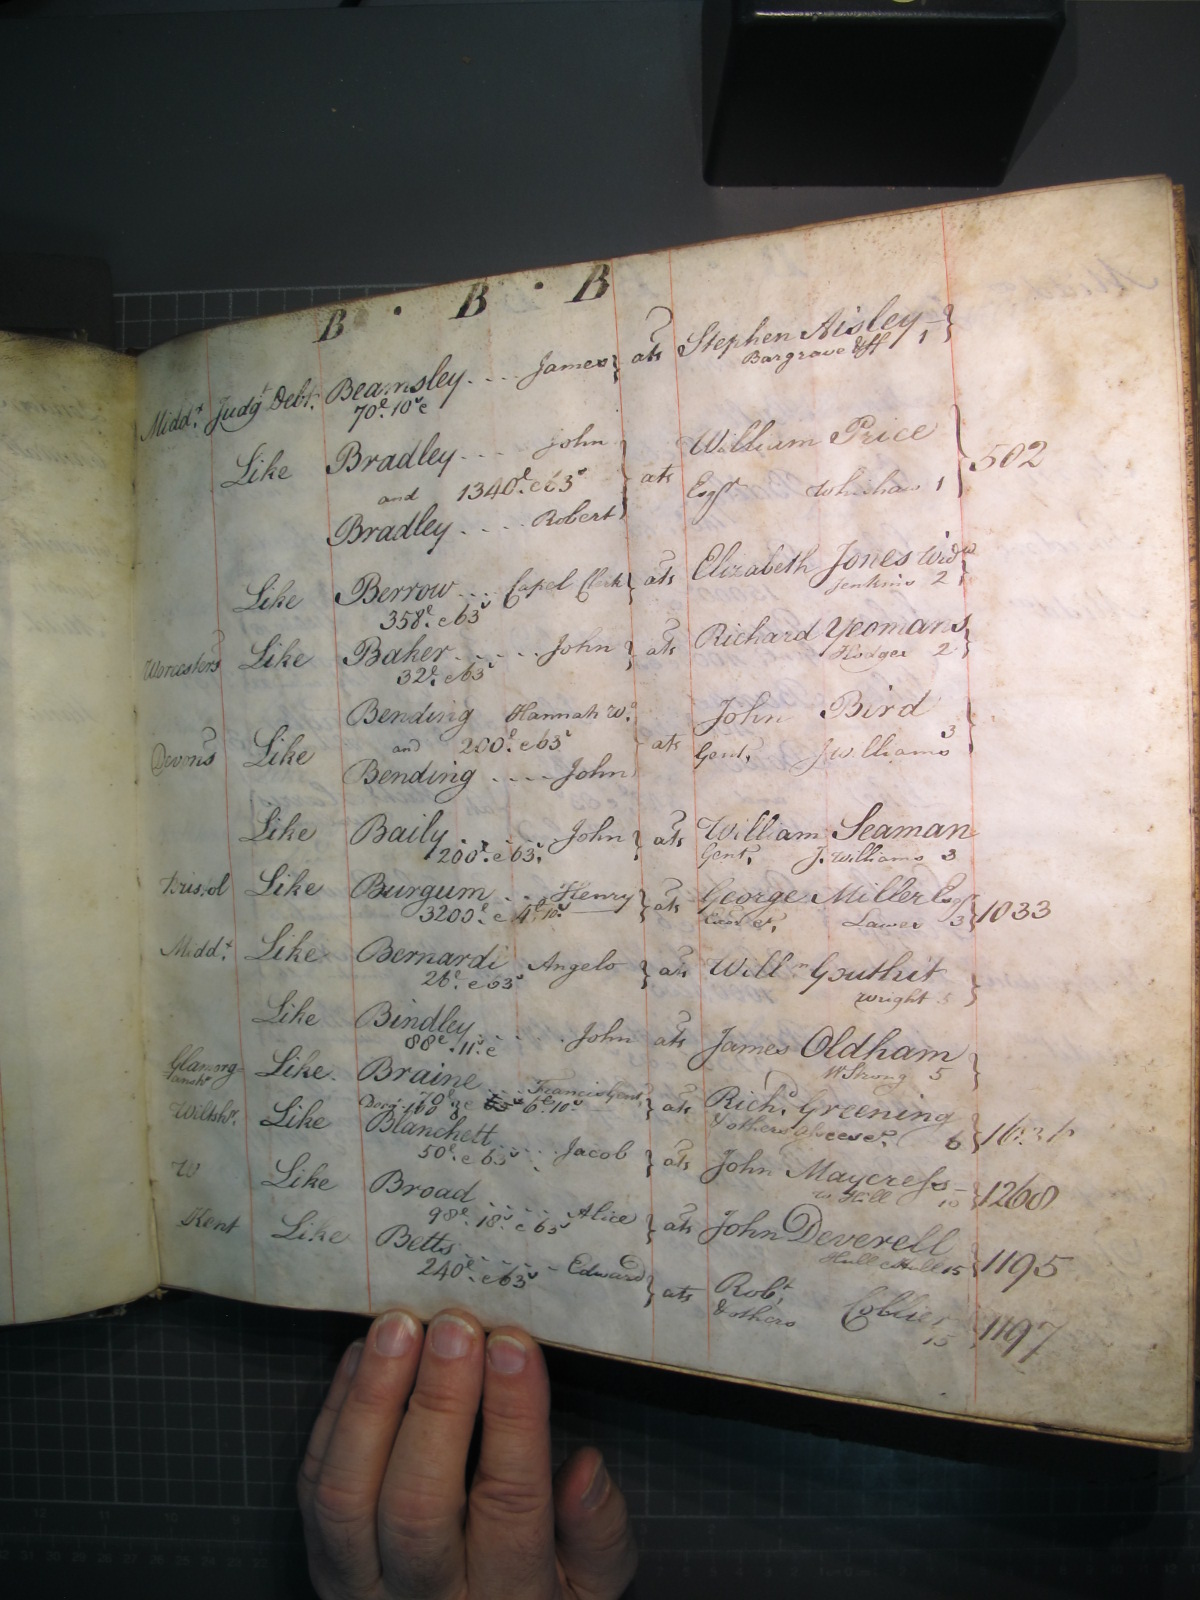 B . B . B
Midd.t Judg.t Debt. Beamsley.... James} ats Stephen Aisley
70£.10s. Bargrave 1}
Like Bradley.... John ats William Price
and 1340£. e 63s Esq.r 1} 502
Bradley.... Robert}
Like Berrow.... Capel Clerk} ats Elizabeth Jones Wid.w
358£. e 63s Jenkins 2}
Worcesters Like Baker...... John} ats Richard Yeomans
32£. e 63s Hodges 2}
Bending Hannah W.d John Bird
Devons Like and 200£. e 63s ats Gent. J Williams 3
Bending.... John
Like Baily..... John} ats William Seaman
200£. e 63s. Gent. J. Williams 3
Bristol Like Burgum... Henry} ats George Miller Esq.r
3200£. e 4£.10s. Lawes 3} 1033
Midd.t Like Bernardi Angelo} ats Will.m Gouthit
26£. e 63s Wright 3}
Like Bindley.... John ats James Oldham
88£.11s. e W Strong 5}
Glamorganshr Like. Braine... Francis Gent.} ats Rich.d Greening
6£.10s & others 6}
Wiltshr. Like Blanchett... Jacob} ats John Maycress
50£. e 63s W Hill 10} 1268
W Like Broad..... Alice} ats John Deverell
98£.18s. e 63s Hull 15} 1195
Kent Like Betts..... Edward} ats Rob.t Collier
240£. e 63s & others 15} 1197